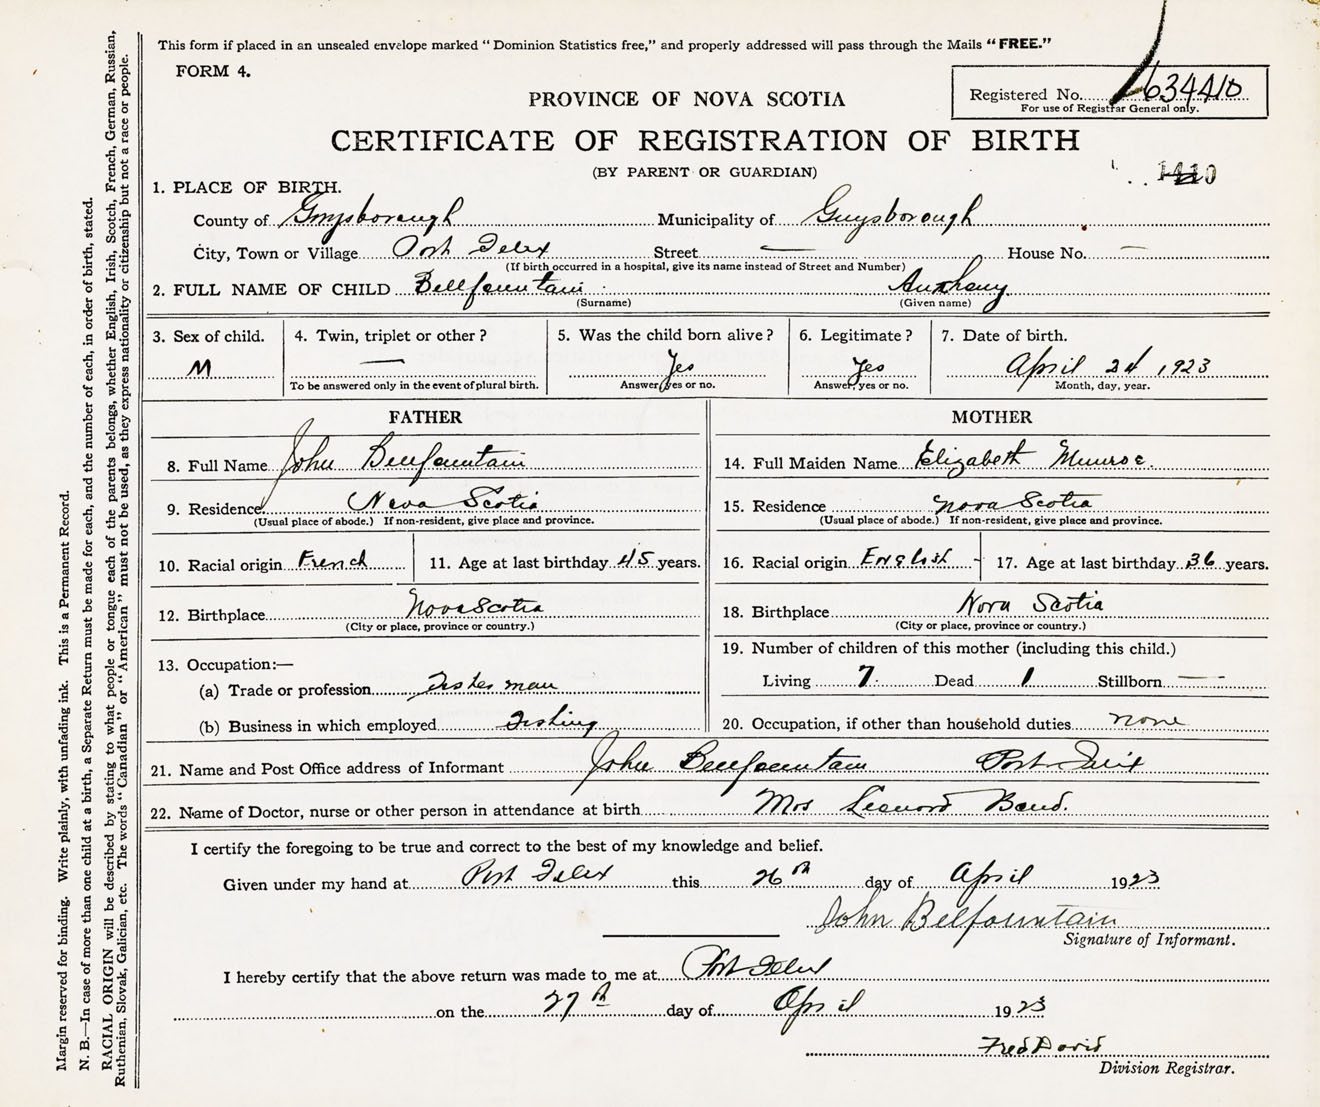 This form if placed in an unsealed envelope marked “Dominion Statistics free,” and properly addressed will pass through the Mails “FREE.”
FORM 4.
Registered No. 634410
For use of Registrar General only.
PROVINCE OF NOVA SCOTIA
CERTIFICATE OF REGISTRATION OF BIRTH
(BY PARENT OR GUARDIAN)
1. PLACE OF BIRTH.
County of Guysborough Municipality of Guysborough
City, Town or Village Port Felix Street — House No. —
(If birth occurred in a hospital, give its name instead of Street and Number)
2. FULL NAME OF CHILD Bellfountain Anthony
(Surname) (Given name)
3. Sex of child. 4. Twin, triplet or other? 5. Was the child born alive? 6. Legitimate? 7. Date of birth.
M — Yes Yes April 24 1923
To be answered only in the event of plural birth. Answer yes or no. Answer yes or no. Month, day, year.
FATHER
8. Full Name John Bellfountain
9. Residence Nova Scotia
(Usual place of abode.) If non-resident, give place and province.
10. Racial origin French 11. Age at last birthday 45 years.
12. Birthplace Nova Scotia
(City or place, province or country.)
13. Occupation:—
(a) Trade or profession Fisherman
(b) Business in which employed Fishing
MOTHER
14. Full Maiden Name Elizabeth Munroe.
15. Residence Nova Scotia
(Usual place of abode.) If non-resident, give place and province.
16. Racial origin English 17. Age at last birthday 36 years.
18. Birthplace Nova Scotia
(City or place, province or country.)
19. Number of children of this mother (including this child.)
Living 7 Dead 1 Stillborn —
20. Occupation, if other than household duties none
21. Name and Post Office address of Informant John Bellfountain Port Felix
22. Name of Doctor, nurse or other person in attendance at birth Mrs Leonord
I certify the foregoing to be true and correct to the best of my knowledge and belief.
Given under my hand at Port Felix this 26th day of April 1923
John Belfountain
Signature of Informant.
I hereby certify that the above return was made to me at Port Felix
on the 27th day of April 1923
Fred David
Division Registrar.
Margin reserved for binding. Write plainly, with unfading ink. This is a Permanent Record.
N. B.—In case of more than one child at a birth, a Separate Return must be made for each, and the number of each, in order of birth, stated.
RACIAL ORIGIN will be described by stating to what people or tongue each of the parents belongs, whether English, Irish, Scotch, French, German, Russian,
Ruthenian, Slovak, Galician, etc. The words “Canadian” or “American” must not be used, as they express nationality or citizenship but not a race or people.